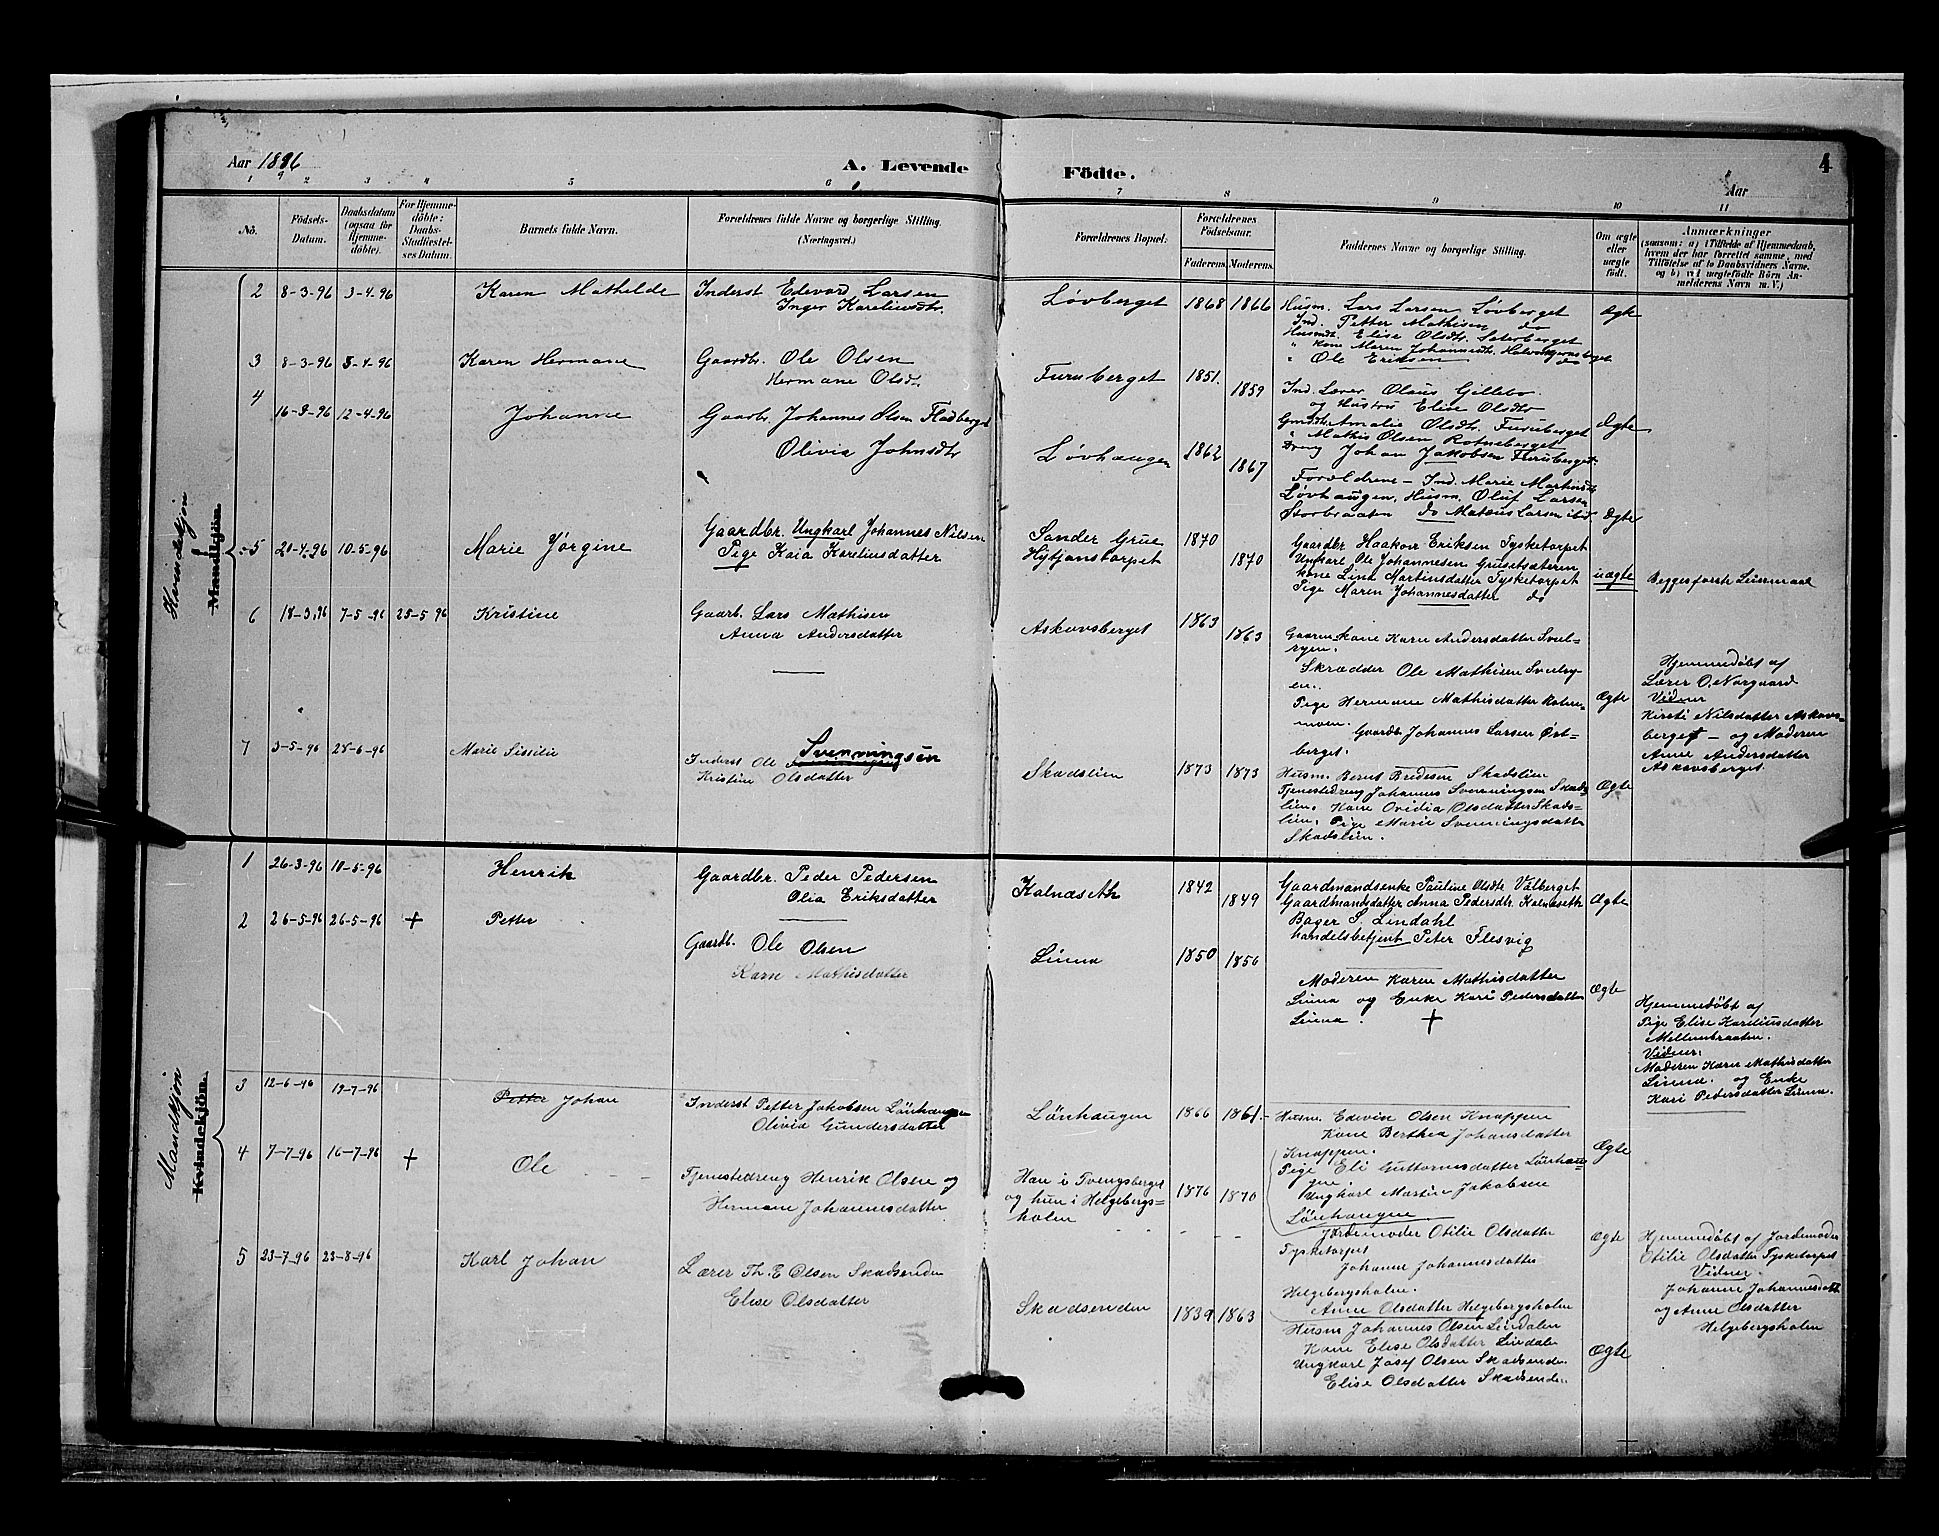 Aar 1896
A. Levende
Födte.
Aar
4
1 2 3 4 5 6 7 8 9 10 11
No.
Födsels-
Datum.
Daabsdatum
(ogsaa for
Hjemme-
døbte).
For Hjemme-
døbte:
Daabs-
Stadfæstel-
ses Datum.
Barnets fulde Navn.
Forældrenes fulde Navne og borgerlige Stilling.
(Næringsvei.)
Forældrenes Bopæl.
Forældrenes
Födselsaar.
Faderens. Moderens.
Faddernes Navne og borgerlige Stilling.
Om ægte
eller
uægte
født.
Anmærkninger
(saasom: a) i Tilfælde af Hjemmedaab,
hvem der har forrettet samme, med
Tilföielse af to Daabsvidners Navne.
og b) ved uægtefödte Börn An-
melderens Navn m. V.)
Kvindekjøn
Mandkjön.
2 8-3-96 3-4-96 Karen Mathilde
Inderst Edevard Larsen
Inger Kareliusdtr.
Løvberget 1868 1866
Husm. Lars Larsen Løvberget
Ind. Petter Mathisen do
Husmdt. Elise Olsdtr. Sæterberget
" Kone Maren Johannesdtr.
" Ole Eriksen do
Ægte
3 8-3-96 3-4-96 Karen Hermane
Gaardbr. Ole Olsen
Hermane Olsdt.
Furuberget 1851. 1859
Ind. Lærer Olaus Gillebo.
og Hustru Elise Olsdtr
Gmdtr. Amalie Olsdt. Furuberget
" Mathis Olsen Rotneberget
Dreng Johan Jakobsen Furuberget.
Ægte
4 16-3-96 12-4-96 Johanne
Gaardb. Johannes Olsen Flodberget
Olivia Johnsdtr
Løvhaugen 1862 1867
Forældrene - Ind. Marie Martinsdt.
Løvhaugen, Husm. Oluf Larsen
Storbraaten do Mathias Larsen ibid
Ægte
5 20-4-96 10-5-96 Marie Jørgine
Gaardbr. Ungkarl Johannes Nilsen
Pige Kaia Kareliusdatter
Sander Grue
Hytjanstorpet
1840 1870
Gaardbr Haakon Eriksen Tysketorpet
Ungkarl Ole Johannesen Gruesetsæteren
Kone Lina Martinsdatter Tysketorpet
Pige Maren Johannesdatter do
uægte
Begges første Leiermaal
6 18-3-96 7-5-96 25-5-96 Kristine
Gaarb. Lars Mathisen
Anna Andersdatter
Askovsberget 1863 1863
Gaarm. kone Karn Andersdatter Svul-
ryen.
Skrædder Ole Mathisen Svulry-
en.
Pige Hermane Mathisdatter Roten-
moen.
Gaardb. Johannes Larsen Øst-
berget.
Ægte
Hjemmedøbt af
Lærer O. Norgaard
Vidner
Kirsti Nilsdatter Askovs-
berget - og Moderen
Anne Andersdatter
Askovsberget.
7 3-5-96 28-6-96 Marie Sissilie
Inderst Ole Svenningsen
Kristine Olsdatter
Skadslien 1873 1873
Husm. Bernt Bredesen Skadslien
Tjenestedreng Johannes Svenningsen Skads-
lien. Kone Ovidia Olsdatter Skads-
lien. Pige Marie Svenningsdatter
Skadslien.
Ægte
Mandkjøn
Kvindekjön.
1 26-3-96 10-5-96 Henrik
Gaardbr. Peder Pedersen
Olia Eriksdatter
Kalnæseth 1842 1849
Gaardmandsenke Pauline Olsdt. Valberget
Gaardmandsdatter Anna Pedersdt. Kalnæseth
Bager S. Lindahl
Handelsbetjent Peter Flesvig
Ægte
2 26-5-96 26-5-96 + Petter
Gaardb. Ole Olsen
Karn Mathisdatter
Linna 1850 1856
Moderen Karen Mathisdatter
Linna og Enke Kari Pedersdatter
Linna. +
Ægte
Hjemmedøbt af
Pige Elise Kareliusdatter
Mellembraaten.
Vidner:
Moderen Karen Mathisdatter
Linna. og Enke
Kari Pedersdatter Linna.
3 12-6-96 19-7-96 Petter Johan
Inderst Petter Jakobsen Lönhaugen
Olivia Gundersdatter
Lönhaugen 1866 1861-
Husm. Edevin Olsen Knappen
Kone Berthea Johansdatter
Knappen.
Pige Eli Guttormsdatter Lönhau-
gen
Ungkarl Martin Jakobsen
Lönhaugen
Ægte
4 7-7-96 16-7-96 + Ole
Tjenestedreng Henrik Olsen og
Hermane Johannesdatter
Han i Tvengsberget
og hun i Helgebergs=
holm
1876 1870
Jordemoder Otilie Olsdatter
Tysketorpet
Johanne Johannesdatter
Helgebergsholm.
Anne Olsdatter Helgebergsholm
Ægte
Hjemmedøbt af Jordemoder
Otilie Olsdatter Tysketorpet
Vidner.
Johanne Johannesdatt
og Anne Olsdatter
Helgebergsholm
5 23-7-96 23-8-96 Karl Johan
Lærer Th. E. Olsen Skadsenden
Elise Olsdatter
Skadsenden 1839 1863
Husm Johannes Olsen Lindalen
Kone Elise Olsdatter Lindalen
Ungkarl Josef Olsen Skadsenden
Elise Olsdatter Skadsenden.
Ægte